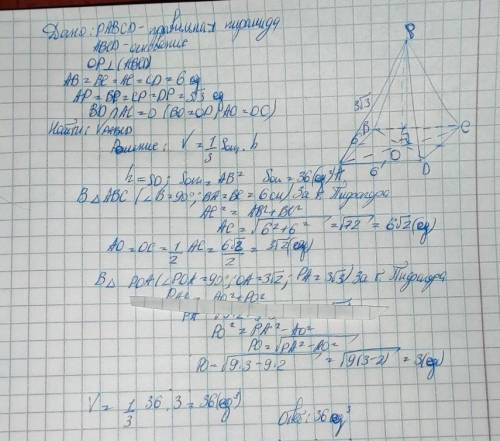 Дано: PABCD - правильная пирамида
ABCD - основание
OP⊥(ABCD)
AB = BC = AC = CD = 6 ед
AP = BP = CP = DP = 3√3 ед
BD ∩ AC = O (BO = OD, AO = OC)
Найти: V PABCD
Решение: V = 1/3 Sосн. · h
h = SO; Sосн = AB² Sосн = 36 (ед²)
В △ ABC (∠B = 90°; BA = BC = 6 см) За т. Пифагора
AC² = AB² + BC²
AC = √6² + 6² = √72 = 6√2 (ед)
AO = OC = 1/2 AC = 6√2/2 = 3√2 (ед)
В △ POA (∠POA = 90°; OA = 3√2; PA = 3√3) За т. Пифагора
AO² + PO²
PA
PO² = PA² - AO²
PO = √PA² - AO²
PO = √9·3 - 9·2 = √9(3-2) = 3 (ед)
V = 1/3 36 · 3 = 36 (ед³)
Ответ: 36 ед³
P
3√3
B
C
6
A
O
6
D